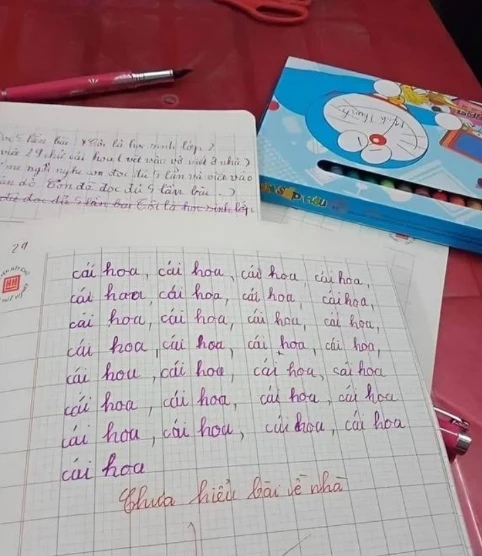 Đọc 5 lần bài : Tôi là học sinh lớp 2
viết 29 chữ cái hoa ( viết vào vở viết ở nhà )
ngồi nghe con đọc đủ 5 lần và viết vào
đó (Con đã đọc đủ 5 lần bài...)
đã đọc đủ 5 lần bài Tôi là học sinh lớp
cái hoa, cái hoa, cái hoa, cái hoa,
cái hoa, cái hoa, cái hoa cái hoa,
cái hoa, cái hoa, cái hoa, cái hoa,
cái hoa, cái hoa, cái hoa, cái hoa,
cái hoa, cái hoa, cái hoa, cái hoa
cái hoa, cái hoa, cái hoa, cái hoa
cái hoa, cái hoa, cái hoa, cái hoa
cái hoa
Chưa hiểu bài về nhà